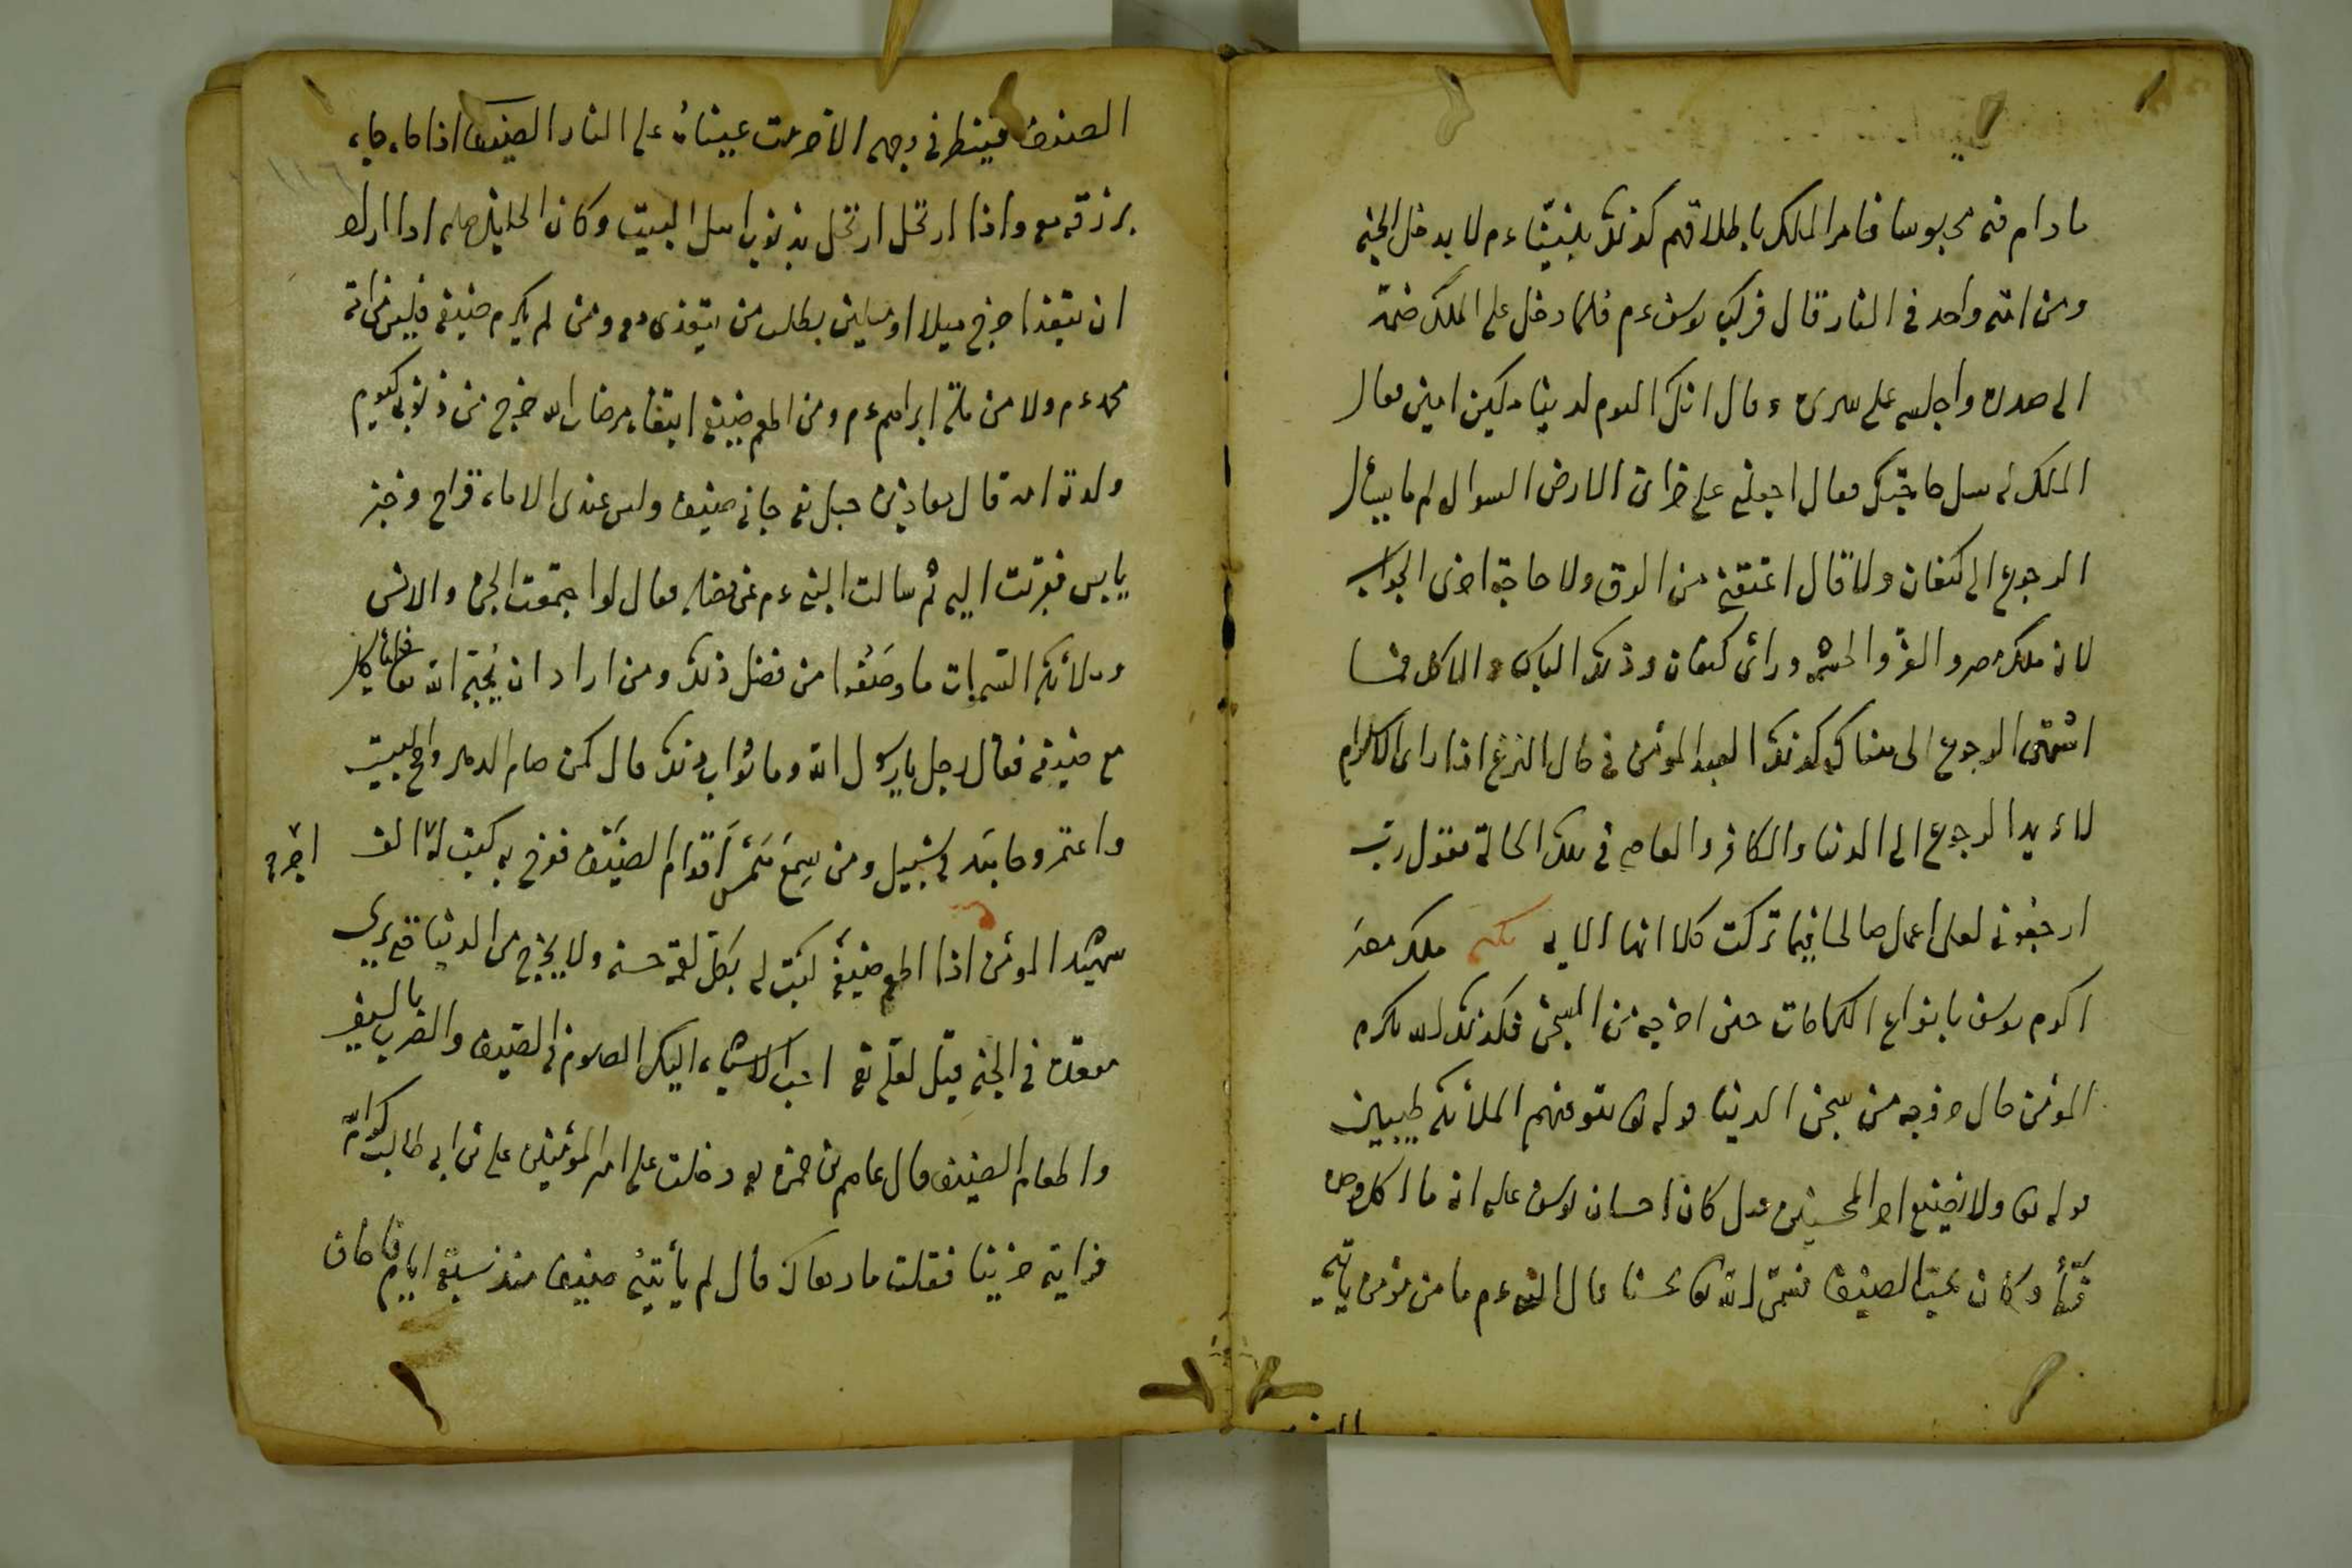 ما دام فيه محبوسا فامر الملك باطلاقهم كذلك نبينا ءم لا يدخل الجنة
ومن امته واحد في النار قال فركب يوسف ءم فلما دخل على الملك ضمه
الى صدره واجلسه على سريره وقال انك اليوم لدينا مكين امين فقال
الملك له سل حاجتك فقال اجعلني على خزائن الارض السوال لم ما يسأل
الرجوع الى كنعان ولا قال اعتقني من الرق ولا حاجة اخرى الجواب
لانه ملك مصر والعز والحشم ورأى كنعان وذلك
الرجوع الى هناك كذلك العبد المؤمن في حال النزع اذا رأى الاكرام
لا يريد الرجوع الى الدنيا والكافر والعاصي في تلك الحالة يقول رب
ارجعوني لعلي اعمل صالحا فيما تركت كلا انها الآية نكته ملك مصر
اكرم يوسف بانواع الكرامات حين اخرجه من السجن فكذلك الله يكرم
المؤمن حال خروجه من سجن الدنيا قوله تعا تتوفيهم الملائكة طيبين
قوله تعا ولا نضيع اجر المحسنين قيل كان احسان يوسف عليه انه ما اكل وحده
قط وكان يحب الضيف فسمى الله تعا محسنا قال النبي ءم ما من مؤمن يأتيه
الضيف فينظر في وجهه الا حرمت عيناه على النار الضيف اذا جاء جاء
برزقه معه واذا ارتحل ارتحل بذنوب اهل البيت وكان الخليل عليه اذا اراد
ان يتغذا خرج ميلا او ميلين يطلب من يتغذى معه ومن لم يكرم ضيفه فليس من امة
محمد ءم ولا من ملة ابراهيم ءم ومن اطعم ضيفه ابتغاء مرضات الله خرج من ذنوبه كيوم
ولدته امه قال معاذ بن جبل جاءني ضيف وليس عندي الا ماء قراح وخبز
يابس فقربت اليه ثم سالت النبي ءم عن فضله فقال لو اجتمعت الجن والانس
وملائكة السموات ما وصفوا من فضل ذلك ومن اراد ان يحبه الله تعا فليأكل
مع ضيفه فقال رجل يا رسول الله وما ثواب ذلك قال كمن صام الدهر وحج البيت
واعتمر وجاهد في سبيل ومن سمع همس اقدام الضيف ففرح به كتب له الف اجر
شهيد المؤمن اذا اطعم ضيفه كتبت له بكل لقمة حسنة ولا يخرج من الدنيا حتى يرى
مقعده في الجنة قيل لعلي احب الاشياء اليك الصوم في الصيف والضرب بالسيف
واطعام الضيف قال عاصم بن حمزه دخلت على امير المؤمنين علي بن ابي طالب
فرايته حزينا فقلت ما دهاك قال لم يأتيني ضيف منذ سبعة ايام فاخاف